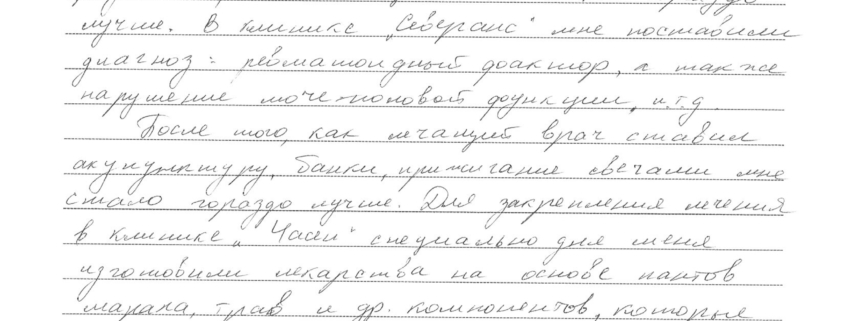 лучше. В клинике „Северанс" мне поставили
диагноз: ревматоидный фактор, а также
нарушение моче-половой функции, и.т.д.
После того, как лечащий врач ставил
акупунктуру, банки, прижигание свечами мне
стало гораздо лучше. Для закрепления лечения
в клинике „Часен" специально для меня
изготовили лекарства на основе пантов
марала, трав и др. компонентов, которые